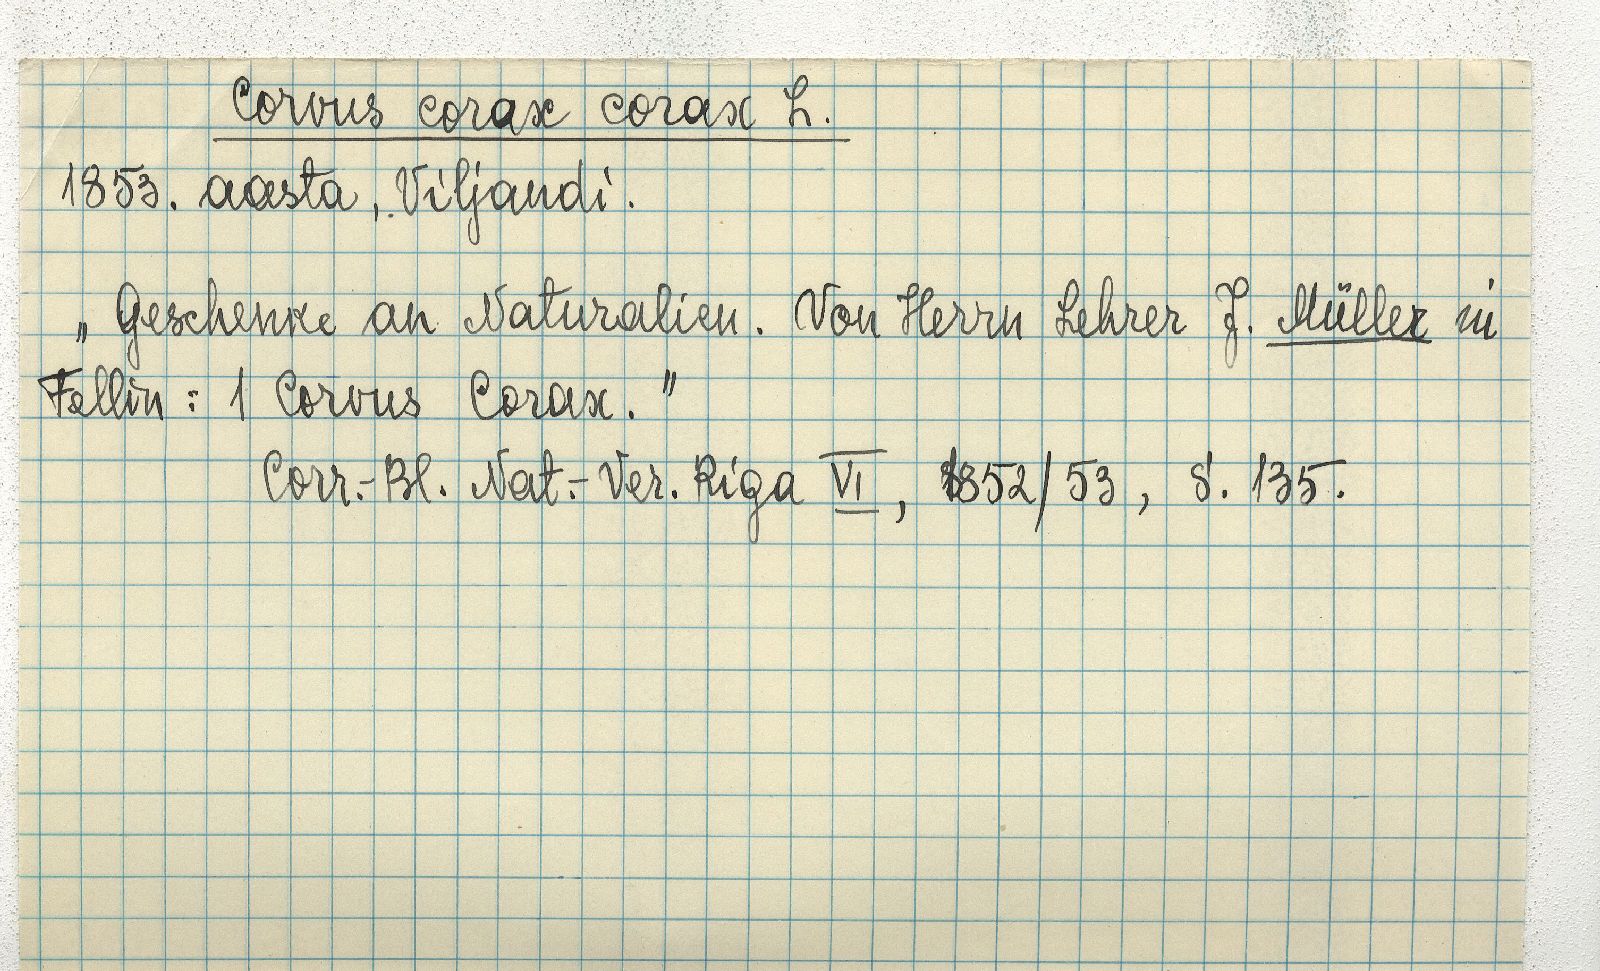 Corvus corax corax L.
1853. aasta, Viljandi.
„Geschenke an Naturalien. Von Herrn Lehrer J. Müller in
Fellin: 1 Corvus Corax."
Corr.-Bl. Nat.-Ver. Riga VI, 1852/53, S. 135.